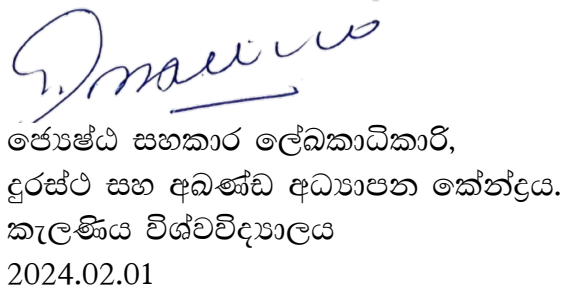 ජ්‍යෙෂ්ඨ සහකාර ලේඛකාධිකාරි,
දුරස්ථ සහ අඛණ්ඩ අධ්‍යාපන කේන්ද්‍රය.
කැලණිය විශ්වවිද්‍යාලය
2024.02.01